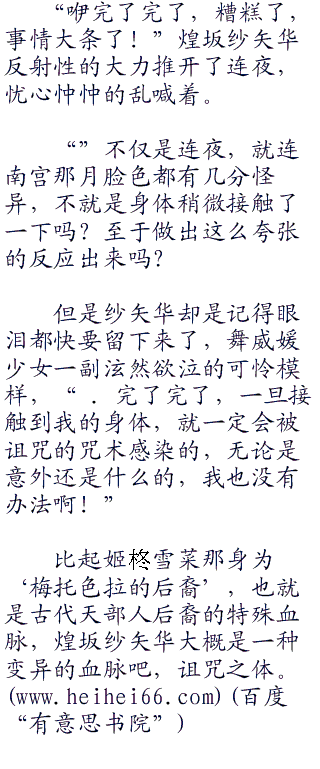 “咿完了完了，糟糕了，
事情大条了！”煌坂纱矢华
反射性的大力推开了连夜，
忧心忡忡的乱喊着。
“”不仅是连夜，就连
南宫那月脸色都有几分怪
异，不就是身体稍微接触了
一下吗？至于做出这么夸张
的反应出来吗？
但是纱矢华却是记得眼
泪都快要留下来了，舞威媛
少女一副泫然欲泣的可怜模
样，“．完了完了，一旦接
触到我的身体，就一定会被
诅咒的咒术感染的，无论是
意外还是什么的，我也没有
办法啊！”
比起姬柊雪菜那身为
‘梅托色拉的后裔’，也就
是古代天部人后裔的特殊血
脉，煌坂纱矢华大概是一种
变异的血脉吧，诅咒之体。
(www.heihei66.com)(百度
“有意思书院”)